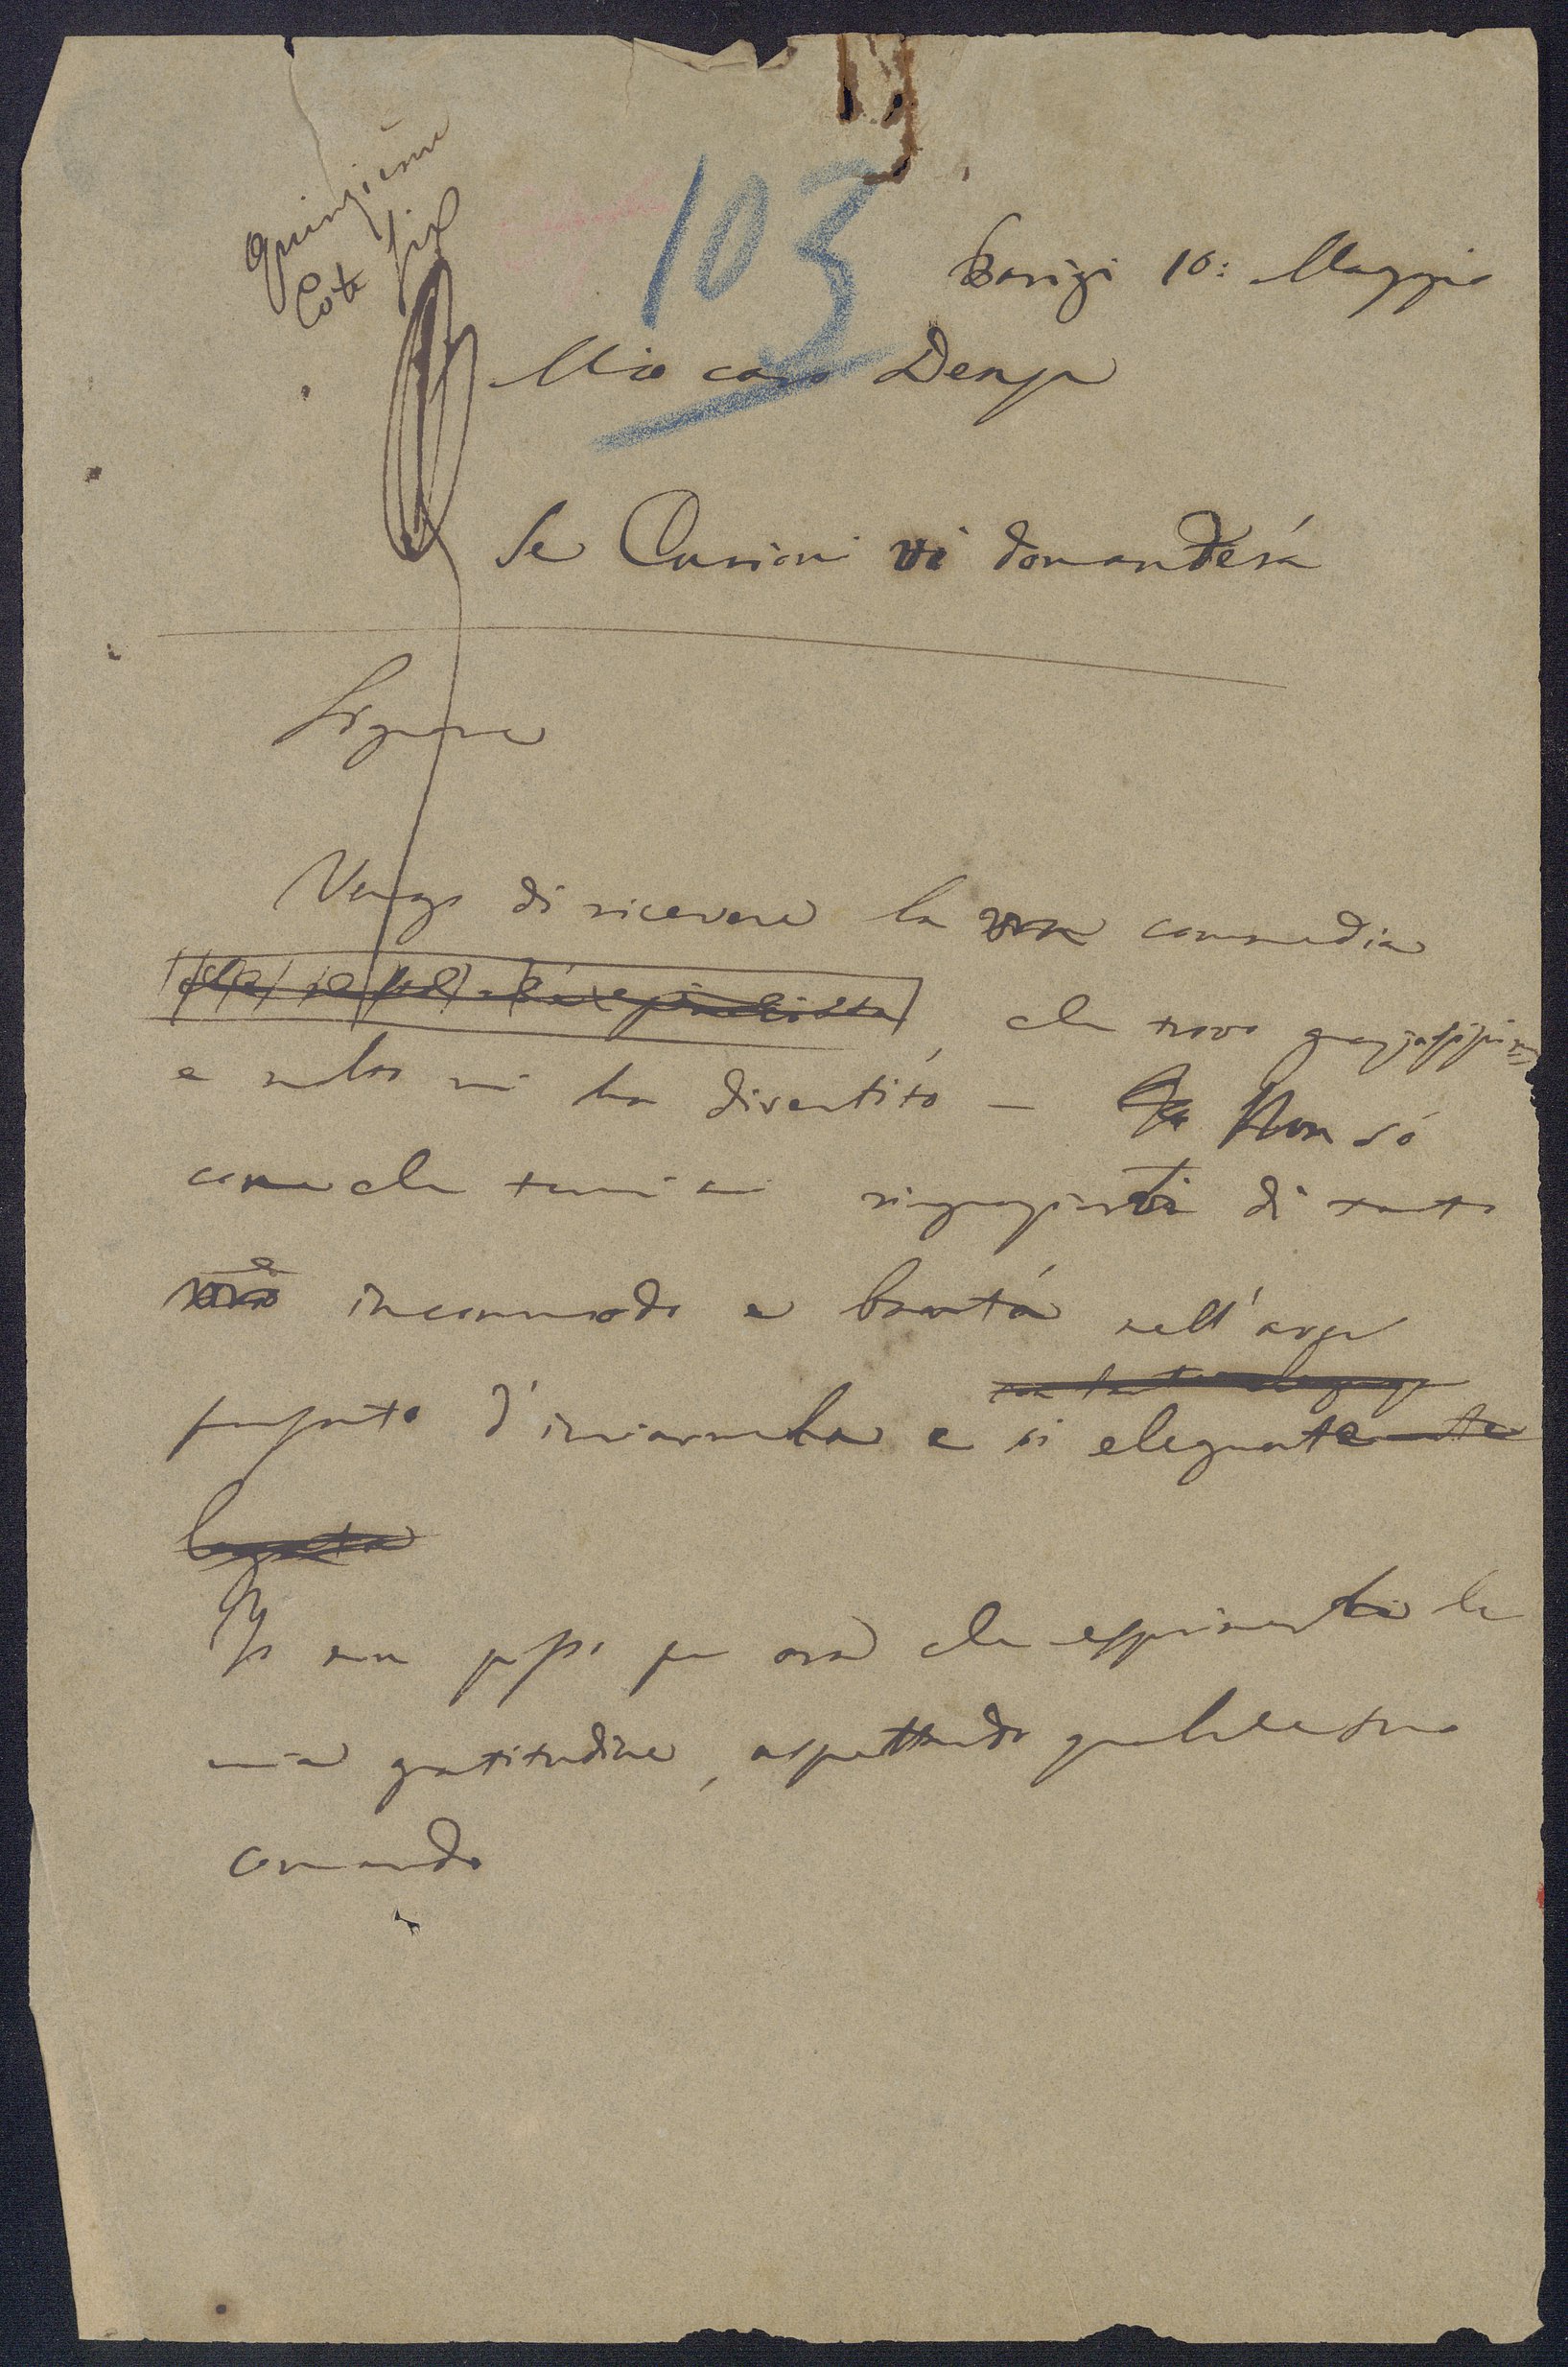 Quinzieme
Cote six
103
Parigi 10: Maggio
Mio caro Denza
Se Cansioni vi domanderá
Signore
Vengo di ricevere la commedia
che trovo graziosissima
e molto mi ha divertito — Non só
come che termini ringraziarvi di tanto
incommodo e bontá nell'aver
pensato d'inviarmela e si elegante
Io non posso per ora che esprimervi la
mia gratitudine, aspettando qualche suo
comando